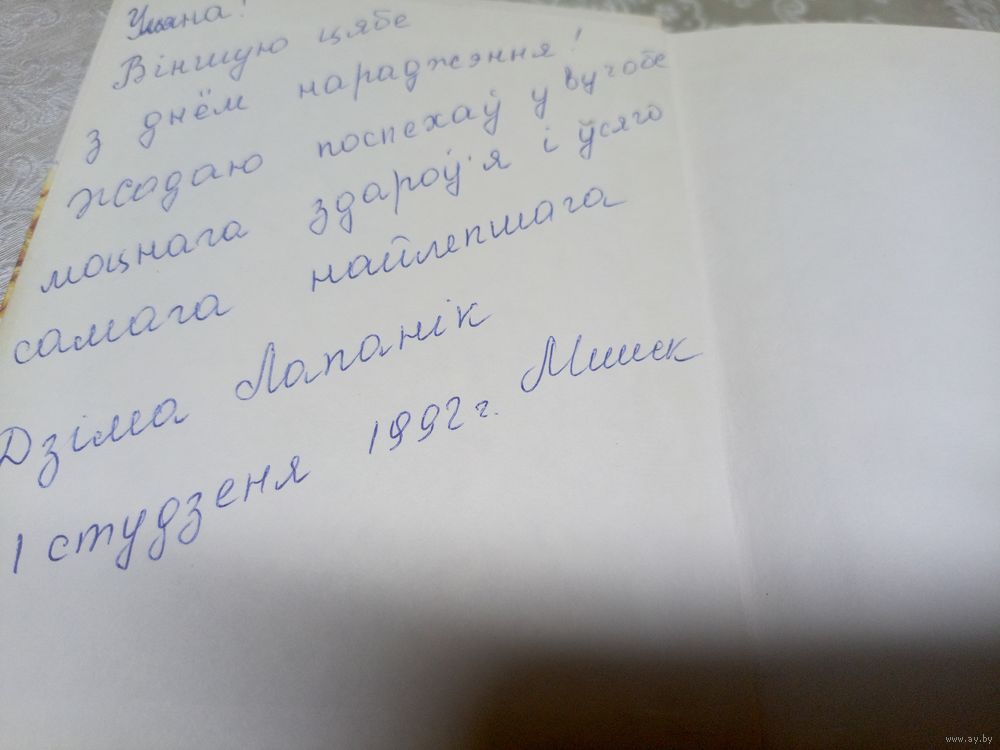 Віншую цябе
з днём нараджэння!
Жадаю поспехаў у вучобе
моцнага здароў'я і ўсяго
самага найлепшага
Дзіма Лапанік
1 студзеня 1992 г. Мінск
www.ay.by